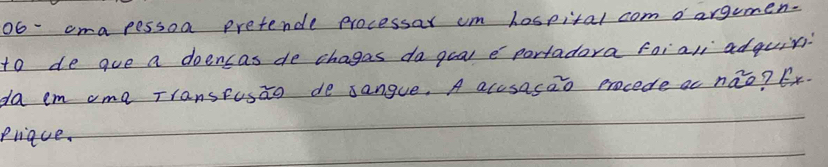 06- uma pessoa pretende processar um hospital com o argumen-
to de que a doenças de chagas da qual é portadora foi ali adquiri-
da em uma Transfusão de sangue. A acusação procede ou não? Ex-
plique.